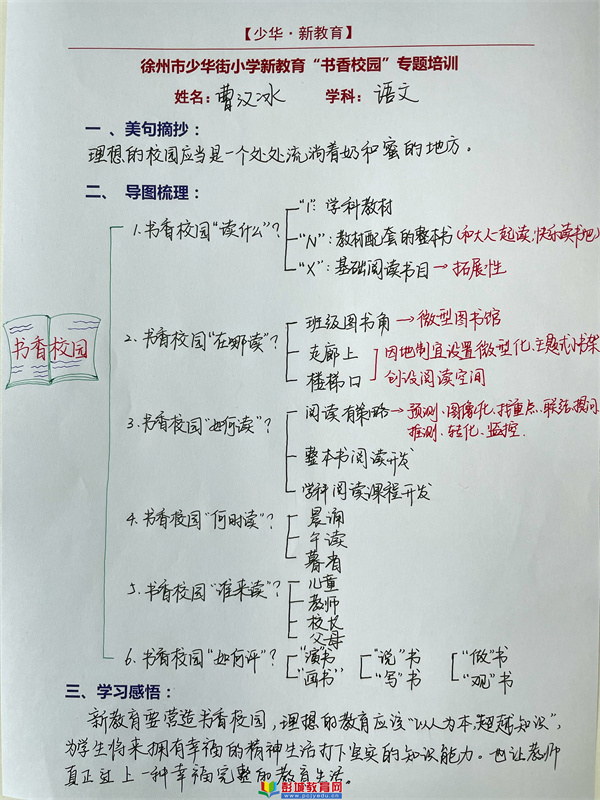 【少华·新教育】
徐州市少华街小学新教育“书香校园”专题培训
姓名：曹汉冰 学科：语文
一、美句摘抄：
理想的校园应当是一个处处流淌着奶和蜜的地方。
二、导图梳理：
书香校园
1.书香校园“读什么”？
“1”：学科教材
“N”：教材配套的整本书（和大人一起读、快乐读书吧）
“X”：基础阅读书目→拓展性
2.书香校园“在哪读”？
班级图书角→微型图书馆
走廊上
楼梯口
因地制宜设置微型化、主题式书架
创设阅读空间
3.书香校园“如何读”？
阅读有策略→预测、图像化、找重点、联结、提问
推测、转化、监控.
整本书阅读开发
学科阅读课程开发
4.书香校园“何时读”？
晨诵
午读
暮省
5.书香校园“谁来读”？
儿童
教师
校长
父母
6.书香校园“如何评”？
“演”书 “说”书 “做”书
“画书” “写”书 “观”书
三、学习感悟：
新教育要营造书香校园，理想的教育应该“以人为本，超越知识”，
为学生将来拥有幸福的精神生活打下坚实的知识能力。也让教师
真正过上一种幸福完整的教育生活。
彭城教育网
www.pcjyedu.cn